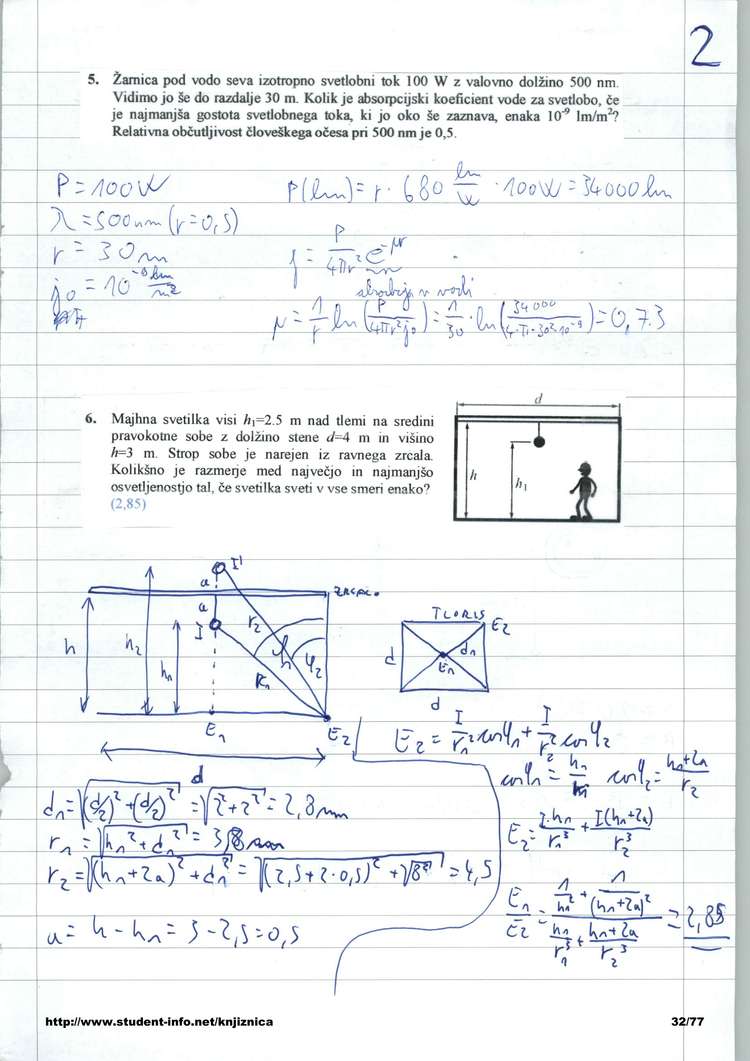 2
5. Žarnica pod vodo seva izotropno svetlobni tok 100 W z valovno dolžino 500 nm.
Vidimo jo še do razdalje 30 m. Kolik je absorpcijski koeficient vode za svetlobo, če
je najmanjša gostota svetlobnega toka, ki jo oko še zaznava, enaka 10⁻⁹ lm/m²?
Relativna občutljivost človeškega očesa pri 500 nm je 0,5.
P = 100W
P(lm) = r · 680 lm/W · 100W = 34000 lm
λ = 500nm (r=0,5)
r = 30m
j = P/4πr² e^-μr
absorbcija v vodi
μ = 1/r ln(P/4πr²j₀) = 1/30 · ln(34000/4·π·30²·10⁻⁹) = 0,73
6. Majhna svetilka visi h₁=2.5 m nad tlemi na sredini
pravokotne sobe z dolžino stene d=4 m in višino
h=3 m. Strop sobe je narejen iz ravnega zrcala.
Kolikšno je razmerje med največjo in najmanjšo
osvetljenostjo tal, če svetilka sveti v vse smeri enako?
(2,85)
d
h
h₁
I'
a
ZRCALO
a
I
r₂
h
h₂
h₁
h
φ₂
r₁
E₁
E₂
d
TLORIS
E₂
d
d₁
E₁
d
E₂ = I/r₁² cosφ₁ + I/r₂² cosφ₂
cosφ₁ = h₁/r₁ cosφ₂ = h₁+2a/r₂
d₁ = √((d/2)² + (d/2)²) = √(2²+2²) = 2,8m
r₁ = √(h₁² + d₁²) = 3,8m
E₂ = I·h₁/r₁³ + I(h₁+2a)/r₂³
r₂ = √((h₁+2a)² + d₁²) = √((2,5+2·0,5)² + √8²) = 4,5
E₁/E₂ = (1/h₁² + 1/(h₁+2a)²)/(h₁/r₁³ + h₁+2a/r₂³) = 2,85
a = h - h₁ = 3 - 2,5 = 0,5
http://www.student-info.net/knjiznica
32/77